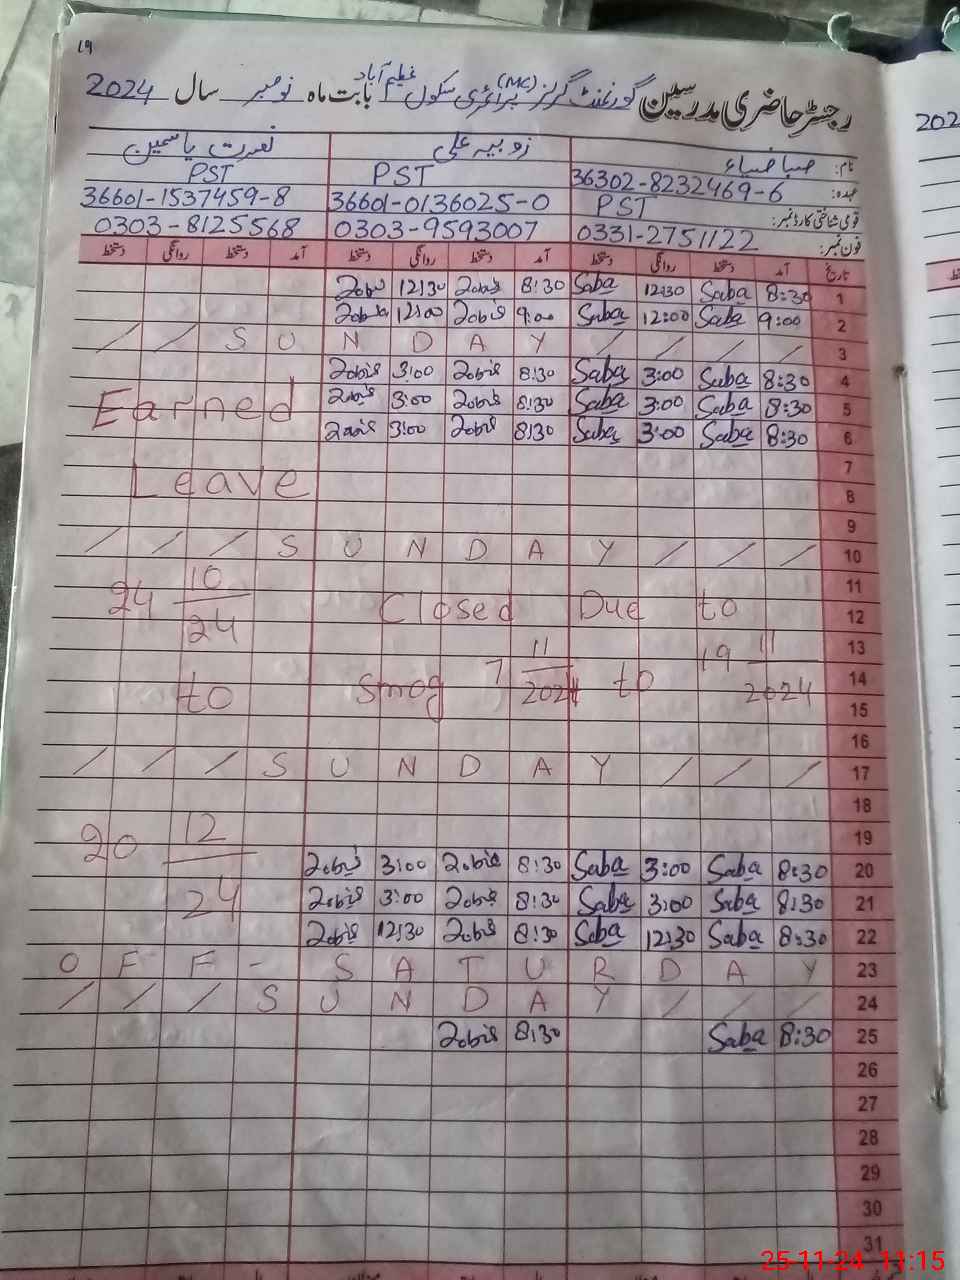 19
رجسٹر حاضری مدرسین گورنمنٹ گرلز (MC) پرائمری سکول عظیم آباد بابت ماہ نومبر سال 2024
نام: صبا ضیاء زوبیہ علی نصرت یاسمین
عہدہ: 36302-8232469-6 PST PST
قومی شناختی کارڈ نمبر: PST 36601-0136025-0 36601-1537459-8
فون نمبر: 0331-2751122 0303-9593007 0303-8125568
تاریخ آمد دستخط روانگی دستخط آمد دستخط روانگی دستخط آمد دستخط روانگی دستخط
1 8:30 Saba 12:30 Saba 8:30 Zobis 12:30
2 9:00 Saba 12:00 Saba 9:00 Zobis 12:00
/ / S U N D A Y / / / / 3
4 8:30 Saba 3:00 Saba 8:30 Zobis 3:00 Zobis
5 8:30 Saba 3:00 Saba 8:30 Zobis 3:00 Zobis
Earned
6 8:30 Saba 3:00 Saba 8:30 Zobis 3:00
7
Leave
8
9
/ / / S U N D A Y / / / 10
11
24 10/24 Closed Due to 12
13
to Smog 7 11/2024 to 19 11/2024 14
15
16
/ / / S U N D A Y / / / 17
18
20 12/24 19
20 8:30 Saba 3:00 Saba 8:30 Zobis 3:00 Zobis
21 8:30 Saba 3:00 Saba 8:30 Zobis 3:00 Zobis
22 8:30 Saba 12:30 Saba 8:30 Zobis 12:30 Zobis
O F F - S A T U R D A Y 23
/ / / S U N D A Y / / / 24
25 8:30 Saba 8:30 Zobis
26
27
28
29
30
31
202
25-11-24 11:15